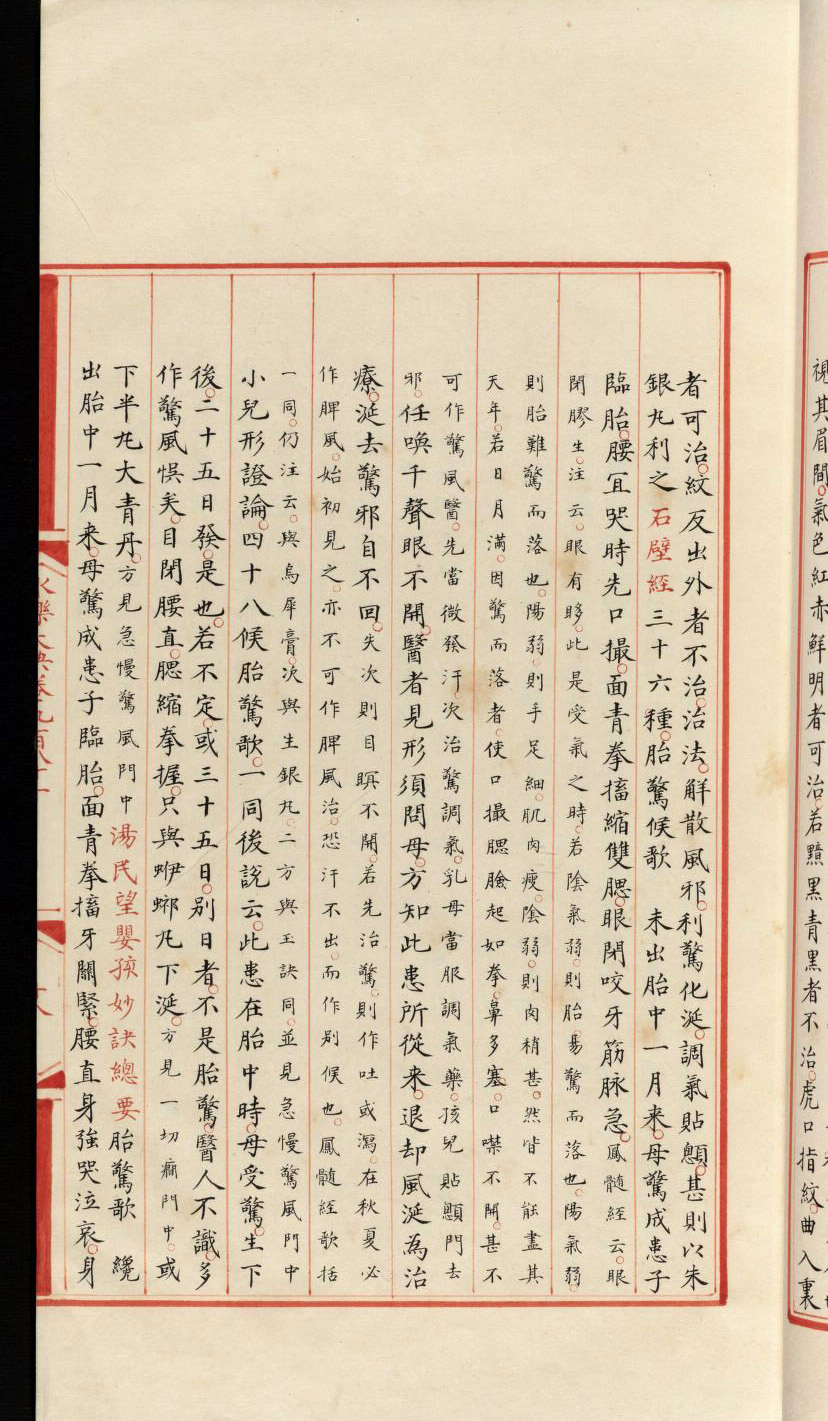 視其眉間。氣色紅赤鮮明者可治。若黯黑青黑者不治。虎口指紋。曲入裏
者可治。紋反出外者不治。治法。解散風邪。利驚化涎。調氣貼顖。甚則以朱
銀丸利之 石壁經三十六種。胎驚候歌 未出胎中一月來。母驚成患子
臨胎。腰冝哭時先口撮。面青拳搐縮雙腮。眼閉咬牙筋脉急。鳳髓經云。眼
閉膠生。注云。眼有眵。此是受氣之時。若陰氣弱。則胎昜驚而落也。陽氣弱。
則胎難驚而落也。陽弱。則手足細。肌肉瘦。陰弱。則肉稍甚。然皆不能盡其
天年。若日月滿。因驚而落者。使口撮腮臉起如拳。鼻多塞。口噤不開。甚不
可作驚風醫。先當微發汗。次治驚調氣。乳母當服調氣藥。孩兒貼顖門去
邪。任喚千聲眼不開。醫者見形須問母。方知此患所從来。退却風涎為治
療。涎去驚邪自不回。失次則目瞑不開。若先治驚。則作吐或瀉。在秋夏必
作脾風。始初見之。亦不可作脾風治。恐汗不出。而作别候也。鳳髓經歌括
一同。仍注云。與烏犀膏。次與生銀丸。二方與玉訣同。並見急慢驚風門中
小兒形證論。四十八候胎驚歌。一同後説云。此患在胎中時。母受驚。生下
後。二十五日發。是也。若不定。或三十五日。别日者。不是胎驚。醫人不識。多
作驚風悮矣。目閉腰直。腮縮拳握。只與蛜蝍丸下涎。方見一切癇門中。或
下半丸大青丹。方見急慢驚風門中湯民望嬰孩妙訣總要胎驚歌 纔
出胎中一月来。母驚成患子臨胎。面青拳搐牙關緊。腰直身強哭泣哀。身